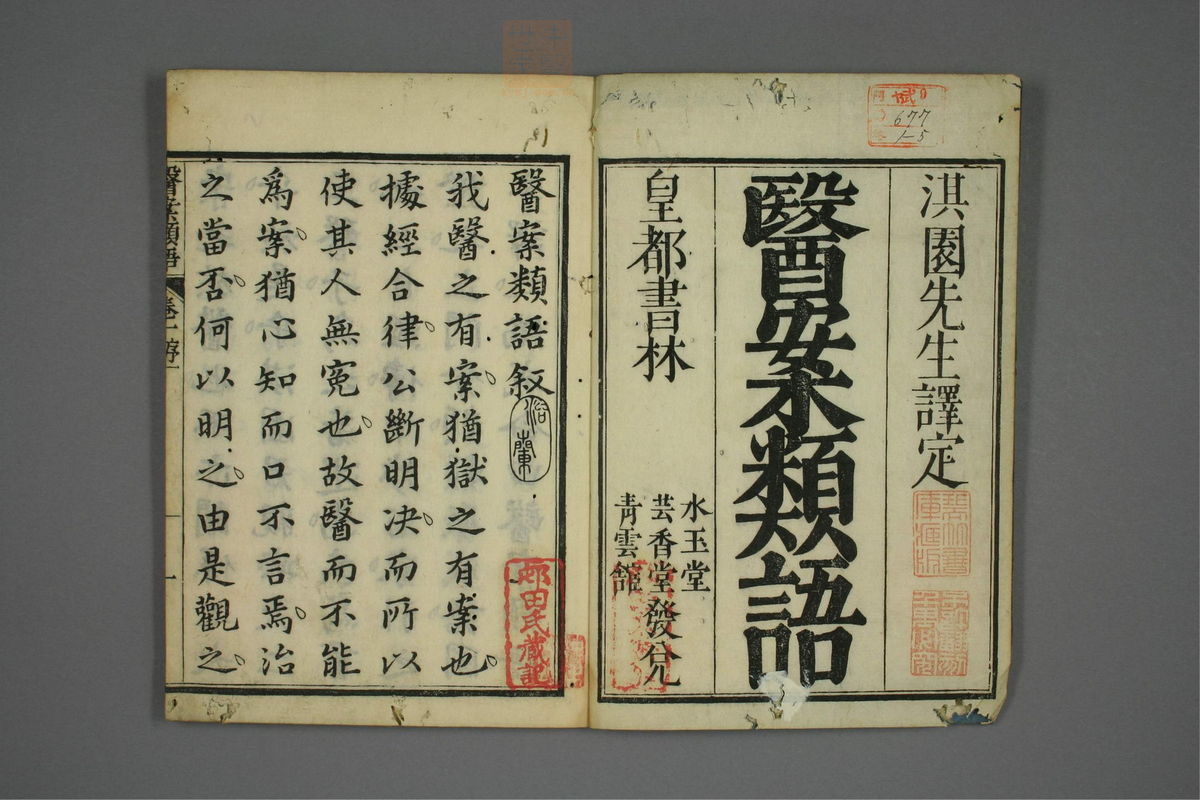 淇園先生譯定
醫案類語
皇都書林
水玉堂
芸香堂發兌
青雲館
677
1-5
醫案類語叙
我醫之有案猶獄之有案也
據經合律公斷明决而所以
使其人無寃也故醫而不能
為案猶心知而口不言焉治
之當否何以明之由是觀之
醫案類語 卷一序
田氏藏記